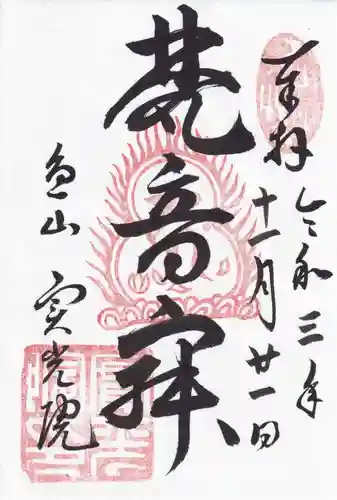 奉拝
令和三年
十一月廿一日
梵音
魚山
実光院